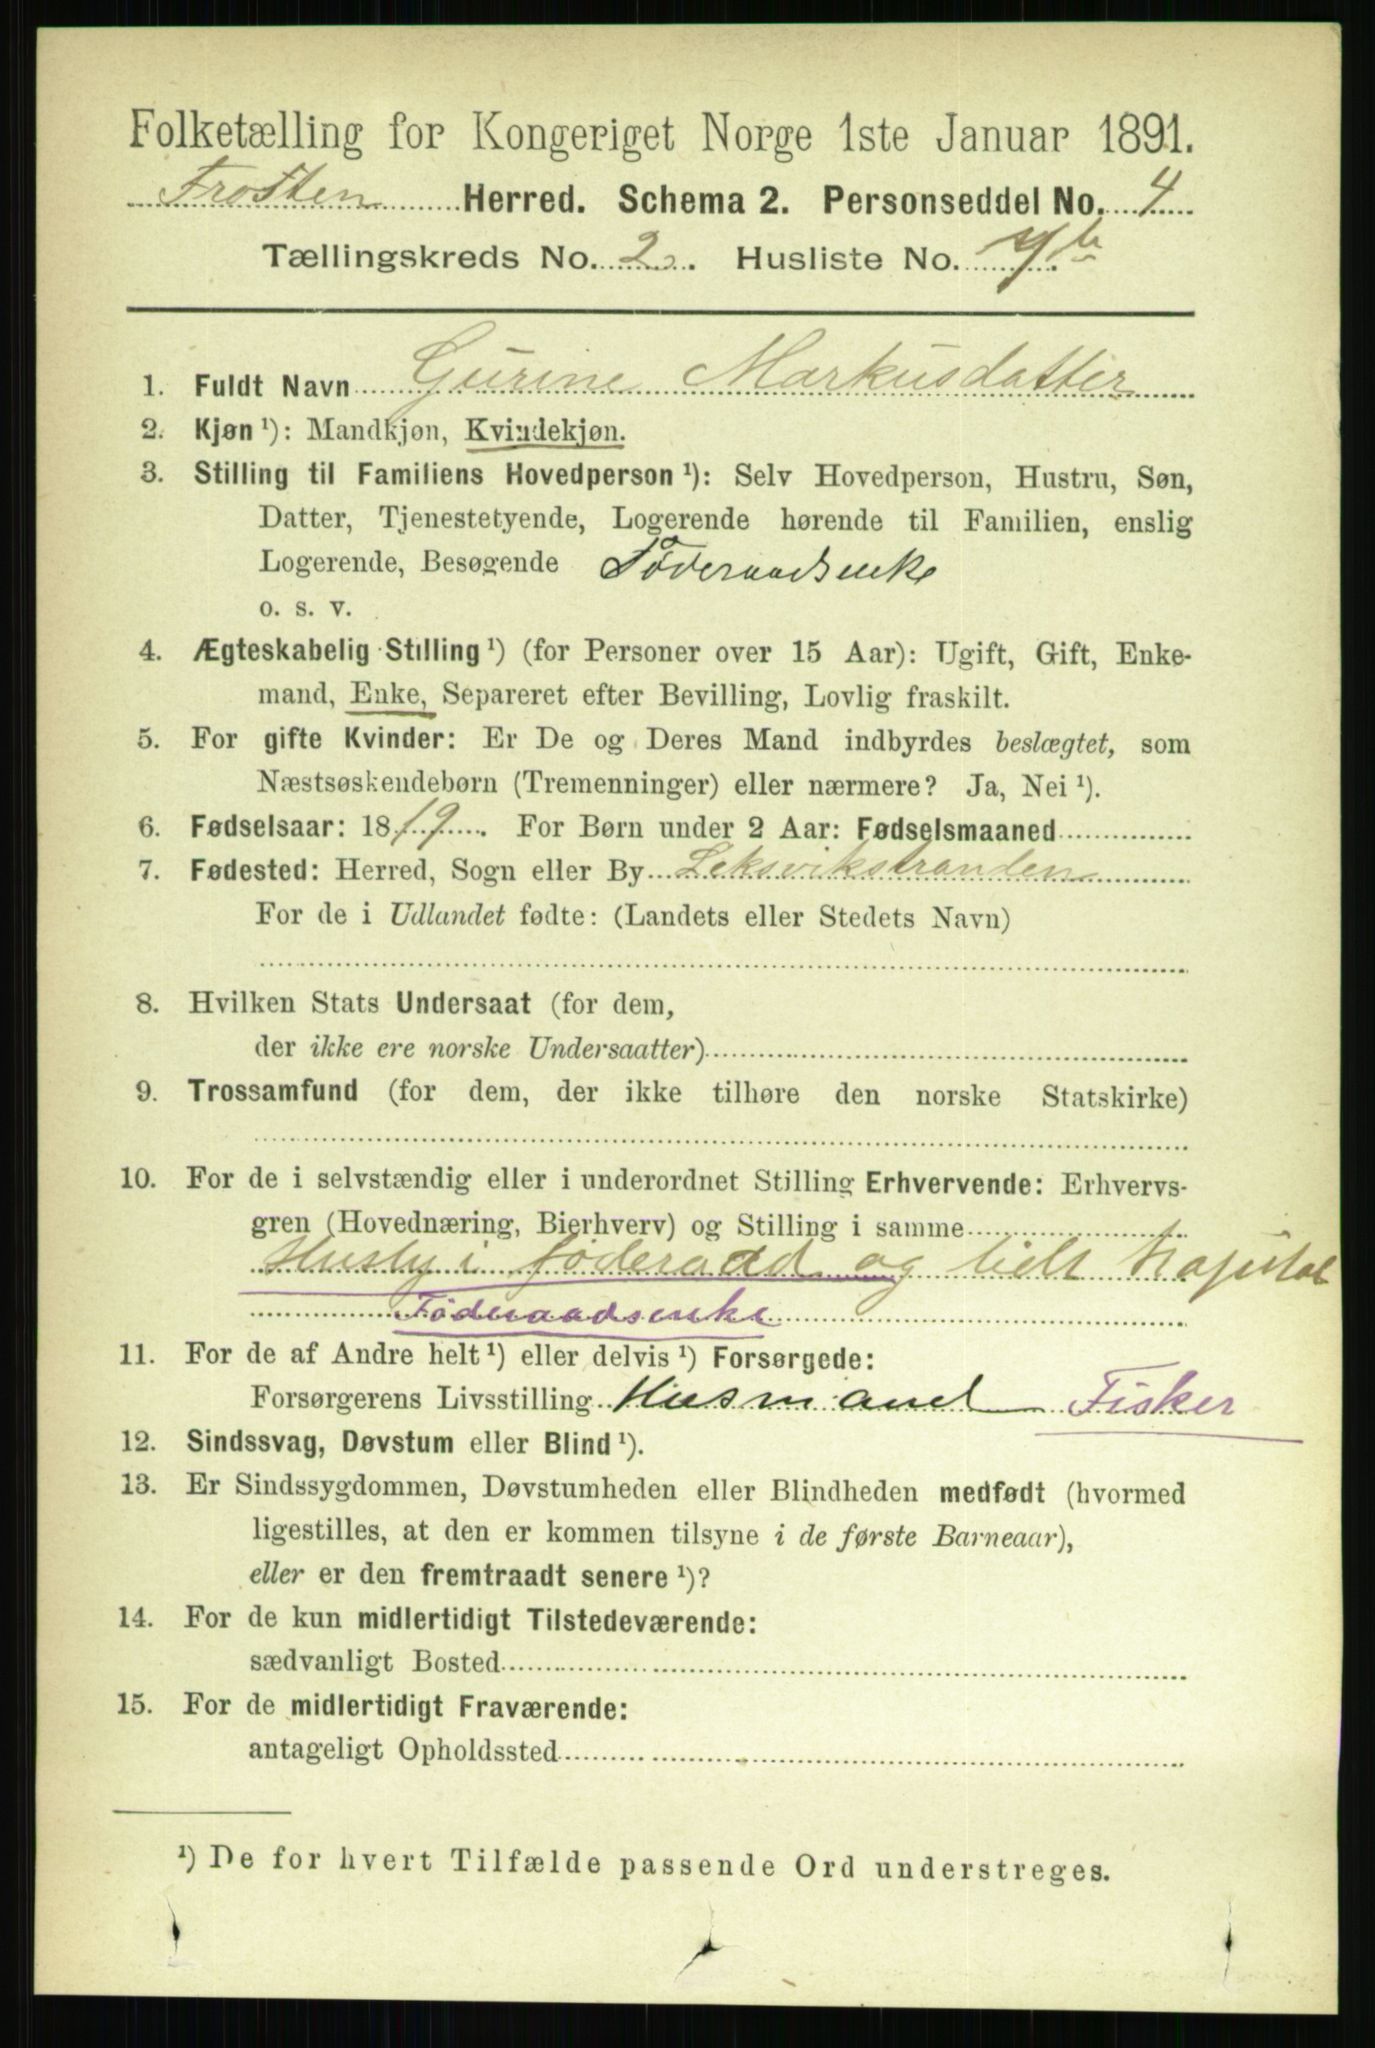 Folketælling for Kongeriget Norge 1ste Januar 1891.
Frosten Herred. Schema 2. Personseddel No. 4
Tællingskreds No. 2. Husliste No.
1. Fuldt Navn Gurine Markusdatter
2. Kjøn ¹): Mandkjøn, Kvindekjøn.
3. Stilling til Familiens Hovedperson ¹): Selv Hovedperson, Hustru, Søn,
Datter, Tjenestetyende, Logerende hørende til Familien, enslig
Logerende, Besøgende Føderaadsenke
o. s. v.
4. Ægteskabelig Stilling ¹) (for Personer over 15 Aar): Ugift, Gift, Enke-
mand, Enke, Separeret efter Bevilling, Lovlig fraskilt.
5. For gifte Kvinder: Er De og Deres Mand indbyrdes beslægtet, som
Næstsøskendebørn (Tremenninger) eller nærmere? Ja, Nei ¹).
6. Fødselsaar: 1819. For Børn under 2 Aar: Fødselsmaaned
7. Fødested: Herred, Sogn eller By Leksvikstranden
For de i Udlandet fødte: (Landets eller Stedets Navn)
8. Hvilken Stats Undersaat (for dem,
der ikke ere norske Undersaatter)
9. Trossamfund (for dem, der ikke tilhøre den norske Statskirke)
10. For de i selvstændig eller i underordnet Stilling Erhvervende: Erhvervs-
gren (Hovednæring, Bierhverv) og Stilling i samme
Husly i føderaad og lidt kapital
Føderaadsenke
11. For de af Andre helt ¹) eller delvis ¹) Forsørgede:
Forsørgerens Livsstilling Husmand Fisker
12. Sindssvag, Døvstum eller Blind ¹).
13. Er Sindssygdommen, Døvstumheden eller Blindheden medfødt (hvormed
ligestilles, at den er kommen tilsyne i de første Barneaar),
eller er den fremtraadt senere ¹)?
14. For de kun midlertidigt Tilstedeværende:
sædvanligt Bosted
15. For de midlertidigt Fraværende:
antageligt Opholdssted
¹) De for hvert Tilfælde passende Ord understreges.